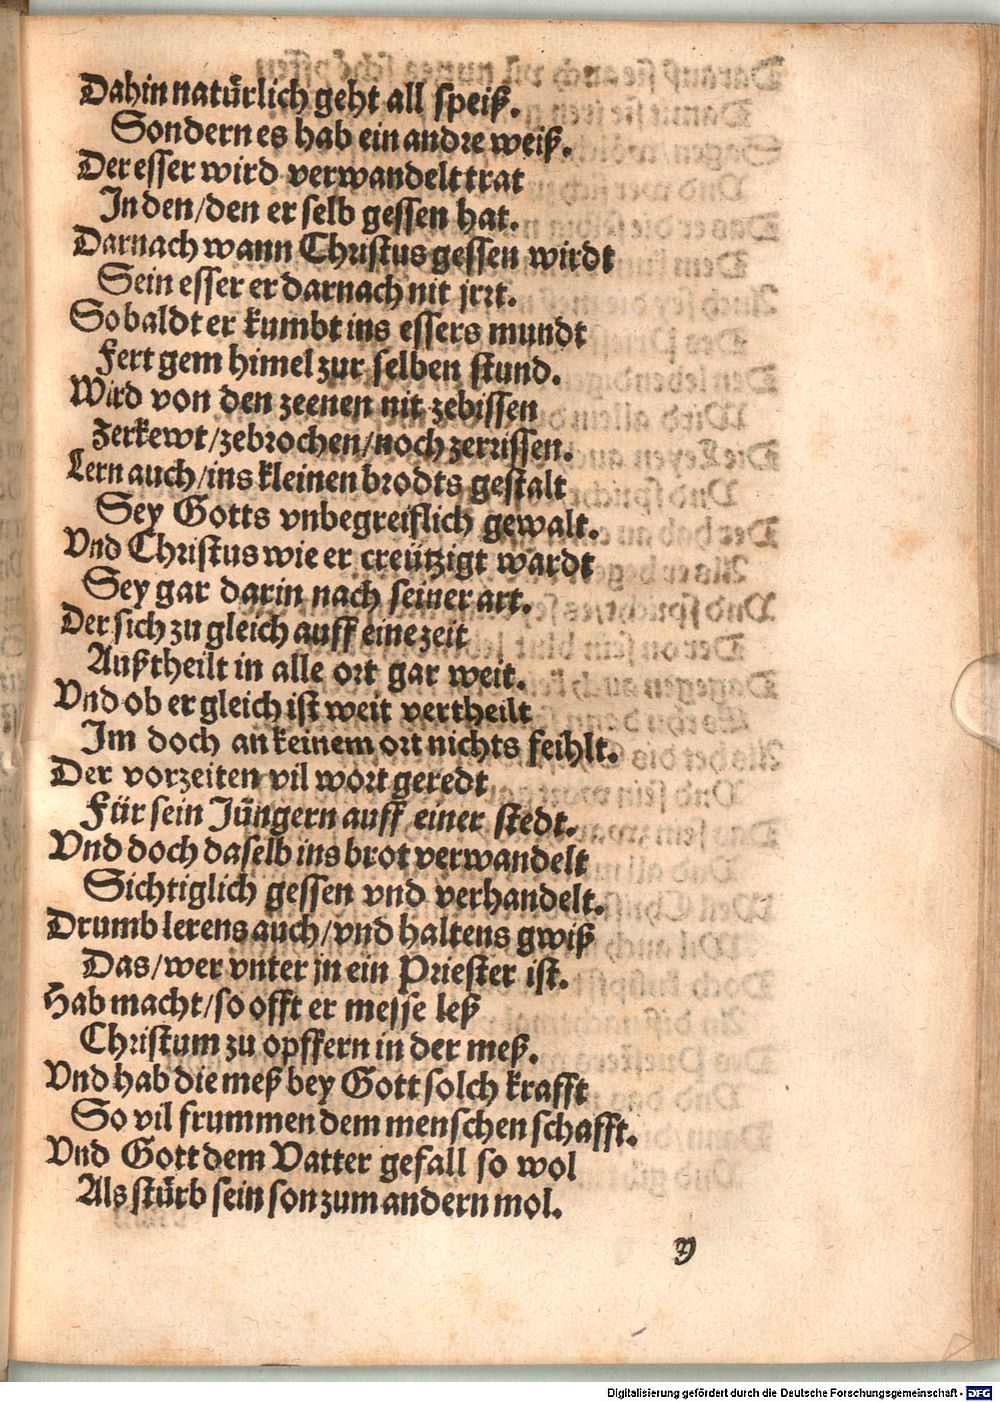 Dahin natürlich geht all speiß.
Sondern es hab ein andre weiß.
Der esser wird verwandelt trat
In den/den er selb gessen hat.
Darnach wann Christus gessen wirdt
Sein esser er darnach nit jrrt.
So baldt er kumbt ins essers mundt
Fert gem himel zur selben stund.
Wird von den zeenen nit zebissen
Zerkewt/zebrochen/noch zerrissen.
Lern auch/ins kleinen brodts gestalt
Sey Gotts vnbegreiflich gewalt.
Vnd Christus wie er creützigt wardt
Sey gar darin nach seiner art.
Der sich zu gleich auff eine zeit
Außtheilt in alle ort gar weit.
Vnd ob er gleich ist weit vertheilt
Im doch an keinem ort nichts feihlt.
Der vorzeiten vil wort geredt
Für sein Jüngern auff einer stedt.
Vnd doch daselb ins brot verwandelt
Sichtiglich gessen vnd verhandelt.
Drumb lerens auch/vnd haltens gwiß
Das/wer vnter jn ein Priester ist.
Hab macht/so offt er messe leß
Christum zu opffern in der meß.
Vnd hab die meß bey Gott solch krafft
So vil frummen dem menschen schafft.
Vnd Gott dem Vatter gefall so wol
Als stürb sein son zum andern mol.
Digitalisierung gefördert durch die Deutsche Forschungsgemeinschaft - DFG